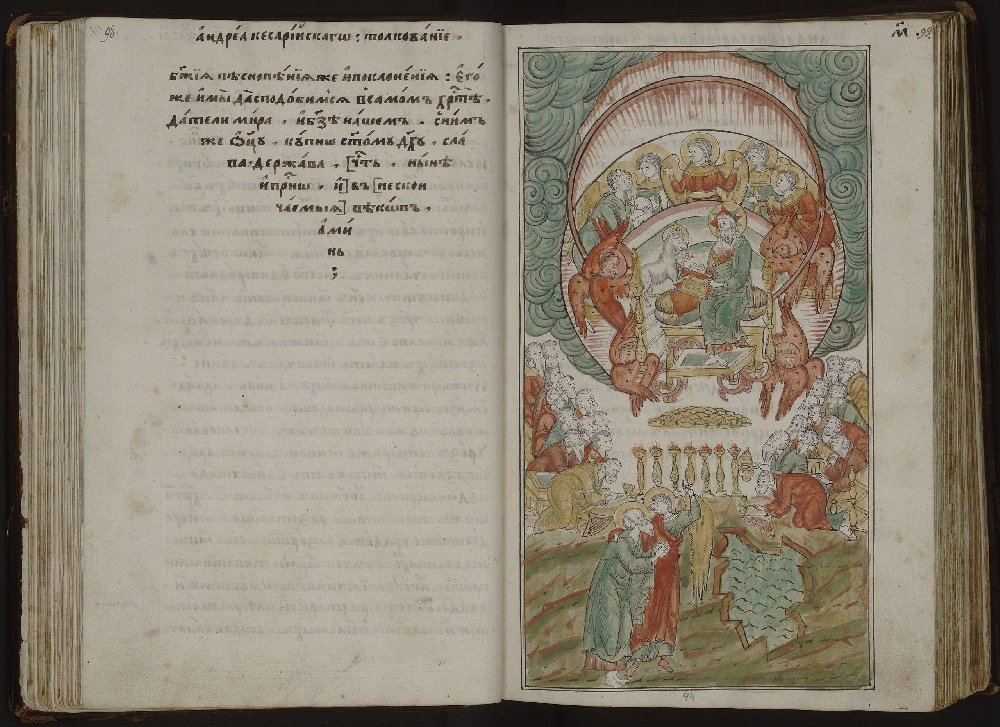 98
андре́а кесарі́йскагѡ : толкова́нїе .
бж҃їѧ пѣснопѣ́нїѧ же и поклоне́нїѧ : Єго́
же и҆мы̀ да сподо́бимсѧ ѡ҆ само́мъ хрⷭ҇тѣ̀ .
да́тели ми́ра . и҆ бз҃ѣ на́шемъ . с ни́мъ
же ѻ҆ц҃ꙋ̀ . кꙋ́пнѡ ст҃о́мꙋ дх҃ꙋ . сла́
ва . держа́ва . че́сть . ны́нѣ
и҆ при́снѡ . и҆ въ нескон
ча́емыѧ вѣ́кѡвъ .
а҆ми́
нь
;
м҃
99
44